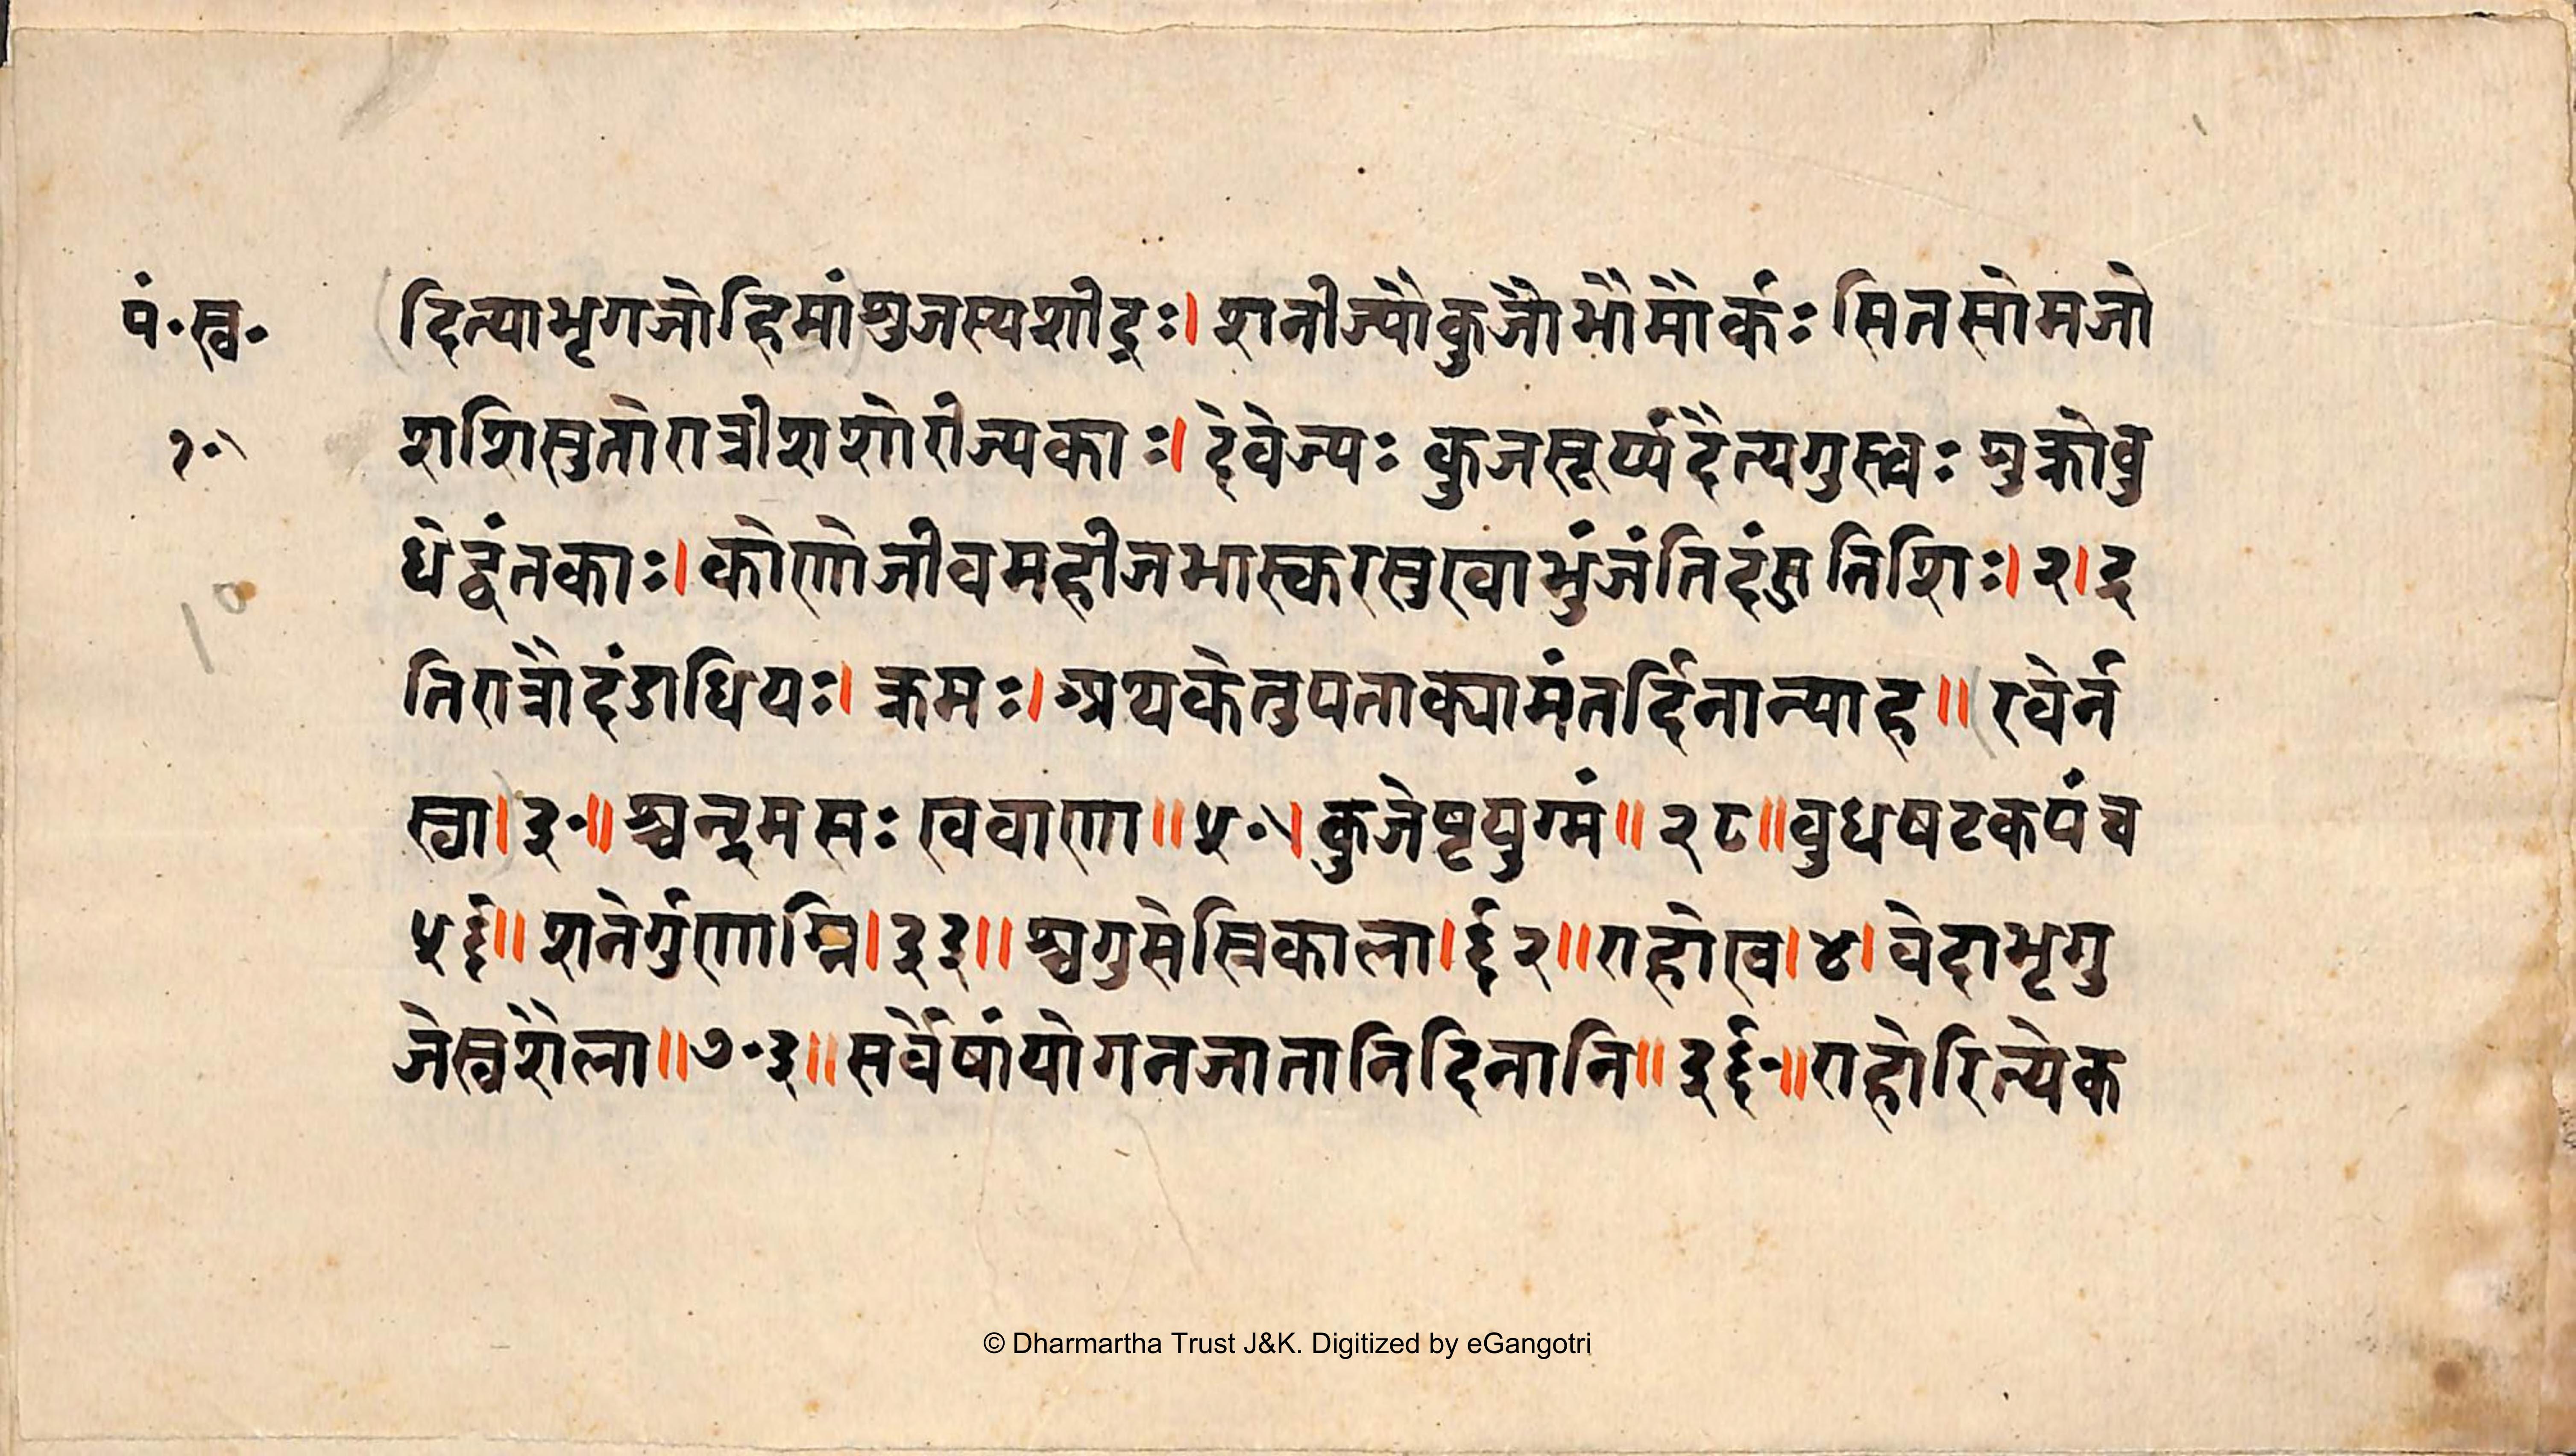 पं॰स्व॰
दित्याभृगजोहिमांशुजस्यशीद्रः। शनीज्यौकुजौभौमौर्कः सितसोमजो
१॰
शशिसुतोरात्रीशशोरीज्यकाः। देवेज्यः कुजसूर्य्यदैत्यगुरुवः शुक्रोवु
धेद्वंतकाः। कोणोजीवमहीजभास्करसुरवाभुंजंतिदंसुतिशिः।२।इ
१०
तिरात्रौदंडाधिपः। क्रमः। अथकेतुपताक्यामंतर्दिनान्याह॥ रवेर्न
खा।३॰॥ श्चन्द्रमसः खवाणा॥५॰। कुजेष्टयुग्मं॥२८॥वुधषटकपंच
५६॥ शनेर्गुणाग्नि।३३॥ श्चगुसेस्निकाला।६२॥राहोख।४। वेदाभृगु
जेस्वशैला॥७॰३॥सर्वेषांयोगनजातानिदिनानि॥३६॰॥राहोरित्येक
© Dharmartha Trust J&K. Digitized by eGangotri